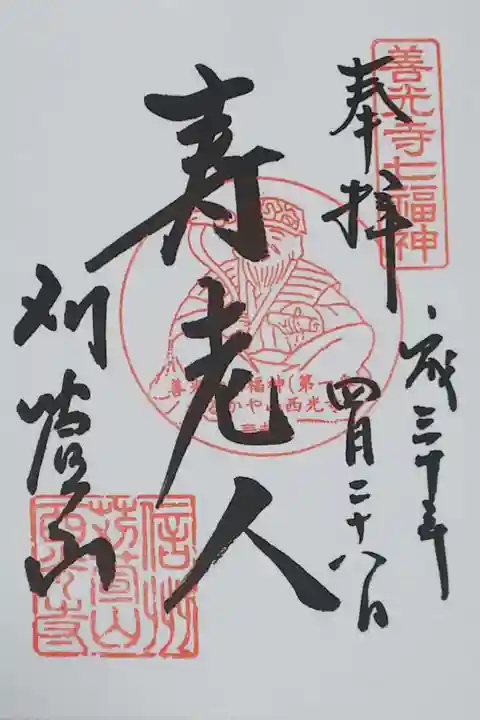 善光寺七福神
奉拝
平成三十年
四月二十八日
寿老人
福神(第一
かや山西光
刈萱山
信州
苅萱山
西光寺